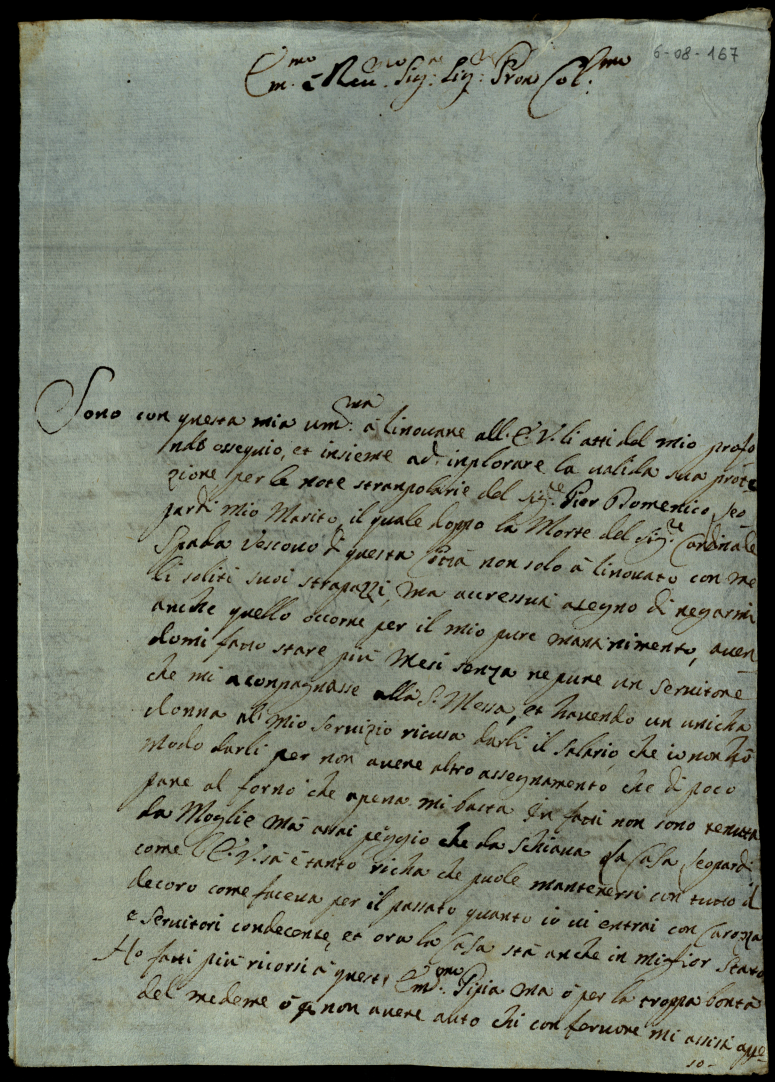 6-08-167
Em.mo e Reu.mo Sig.r Sig.r Pron Col.mo
Sono con questa mia um.ma à rinouare all'E.V. li atti del mio profo
ndo osseguio, et insieme ad inplorare la ualida sua prote
zione per le note stranpolarie del Sig.re Pier Domenico Leo
pardi mio Marito, il quale doppo la Morte del Sig.re Cardinale
Spada Vescouo di questa Città non solo à rinouato con me
li soliti suoi strapazzi, ma accressuti a segno di negarmi
anche quello occorre per il mio pure mantinimento, auen
domi fatto stare più Mesi senza nepure un Seruitore
che mi aconpagnasse alla S. Messa, et hauendo un unicha
donna al mio seruizio ricusa darli il salario, che io non hò
modo darli per non auere altro assegnamento che di poco
pane al forno che apena mi basta In fatti non sono tenuta
da Moglie mà assai peggio che da schiaua la Casa Leopardi
come l'E.V. sà è tanto richa che puole mantenersi con tutto il
decoro come faceua per il passato quanto io ui entrai con Carozza
e Seruitori condecente, et ora la Casa stà anche in miglior stato
Ho fatti più ricorsi à questo Em.mo Pipia ma ò per la troppa bontà
del medeme ò p non auere auto chi con feruore mi assista appo
so-